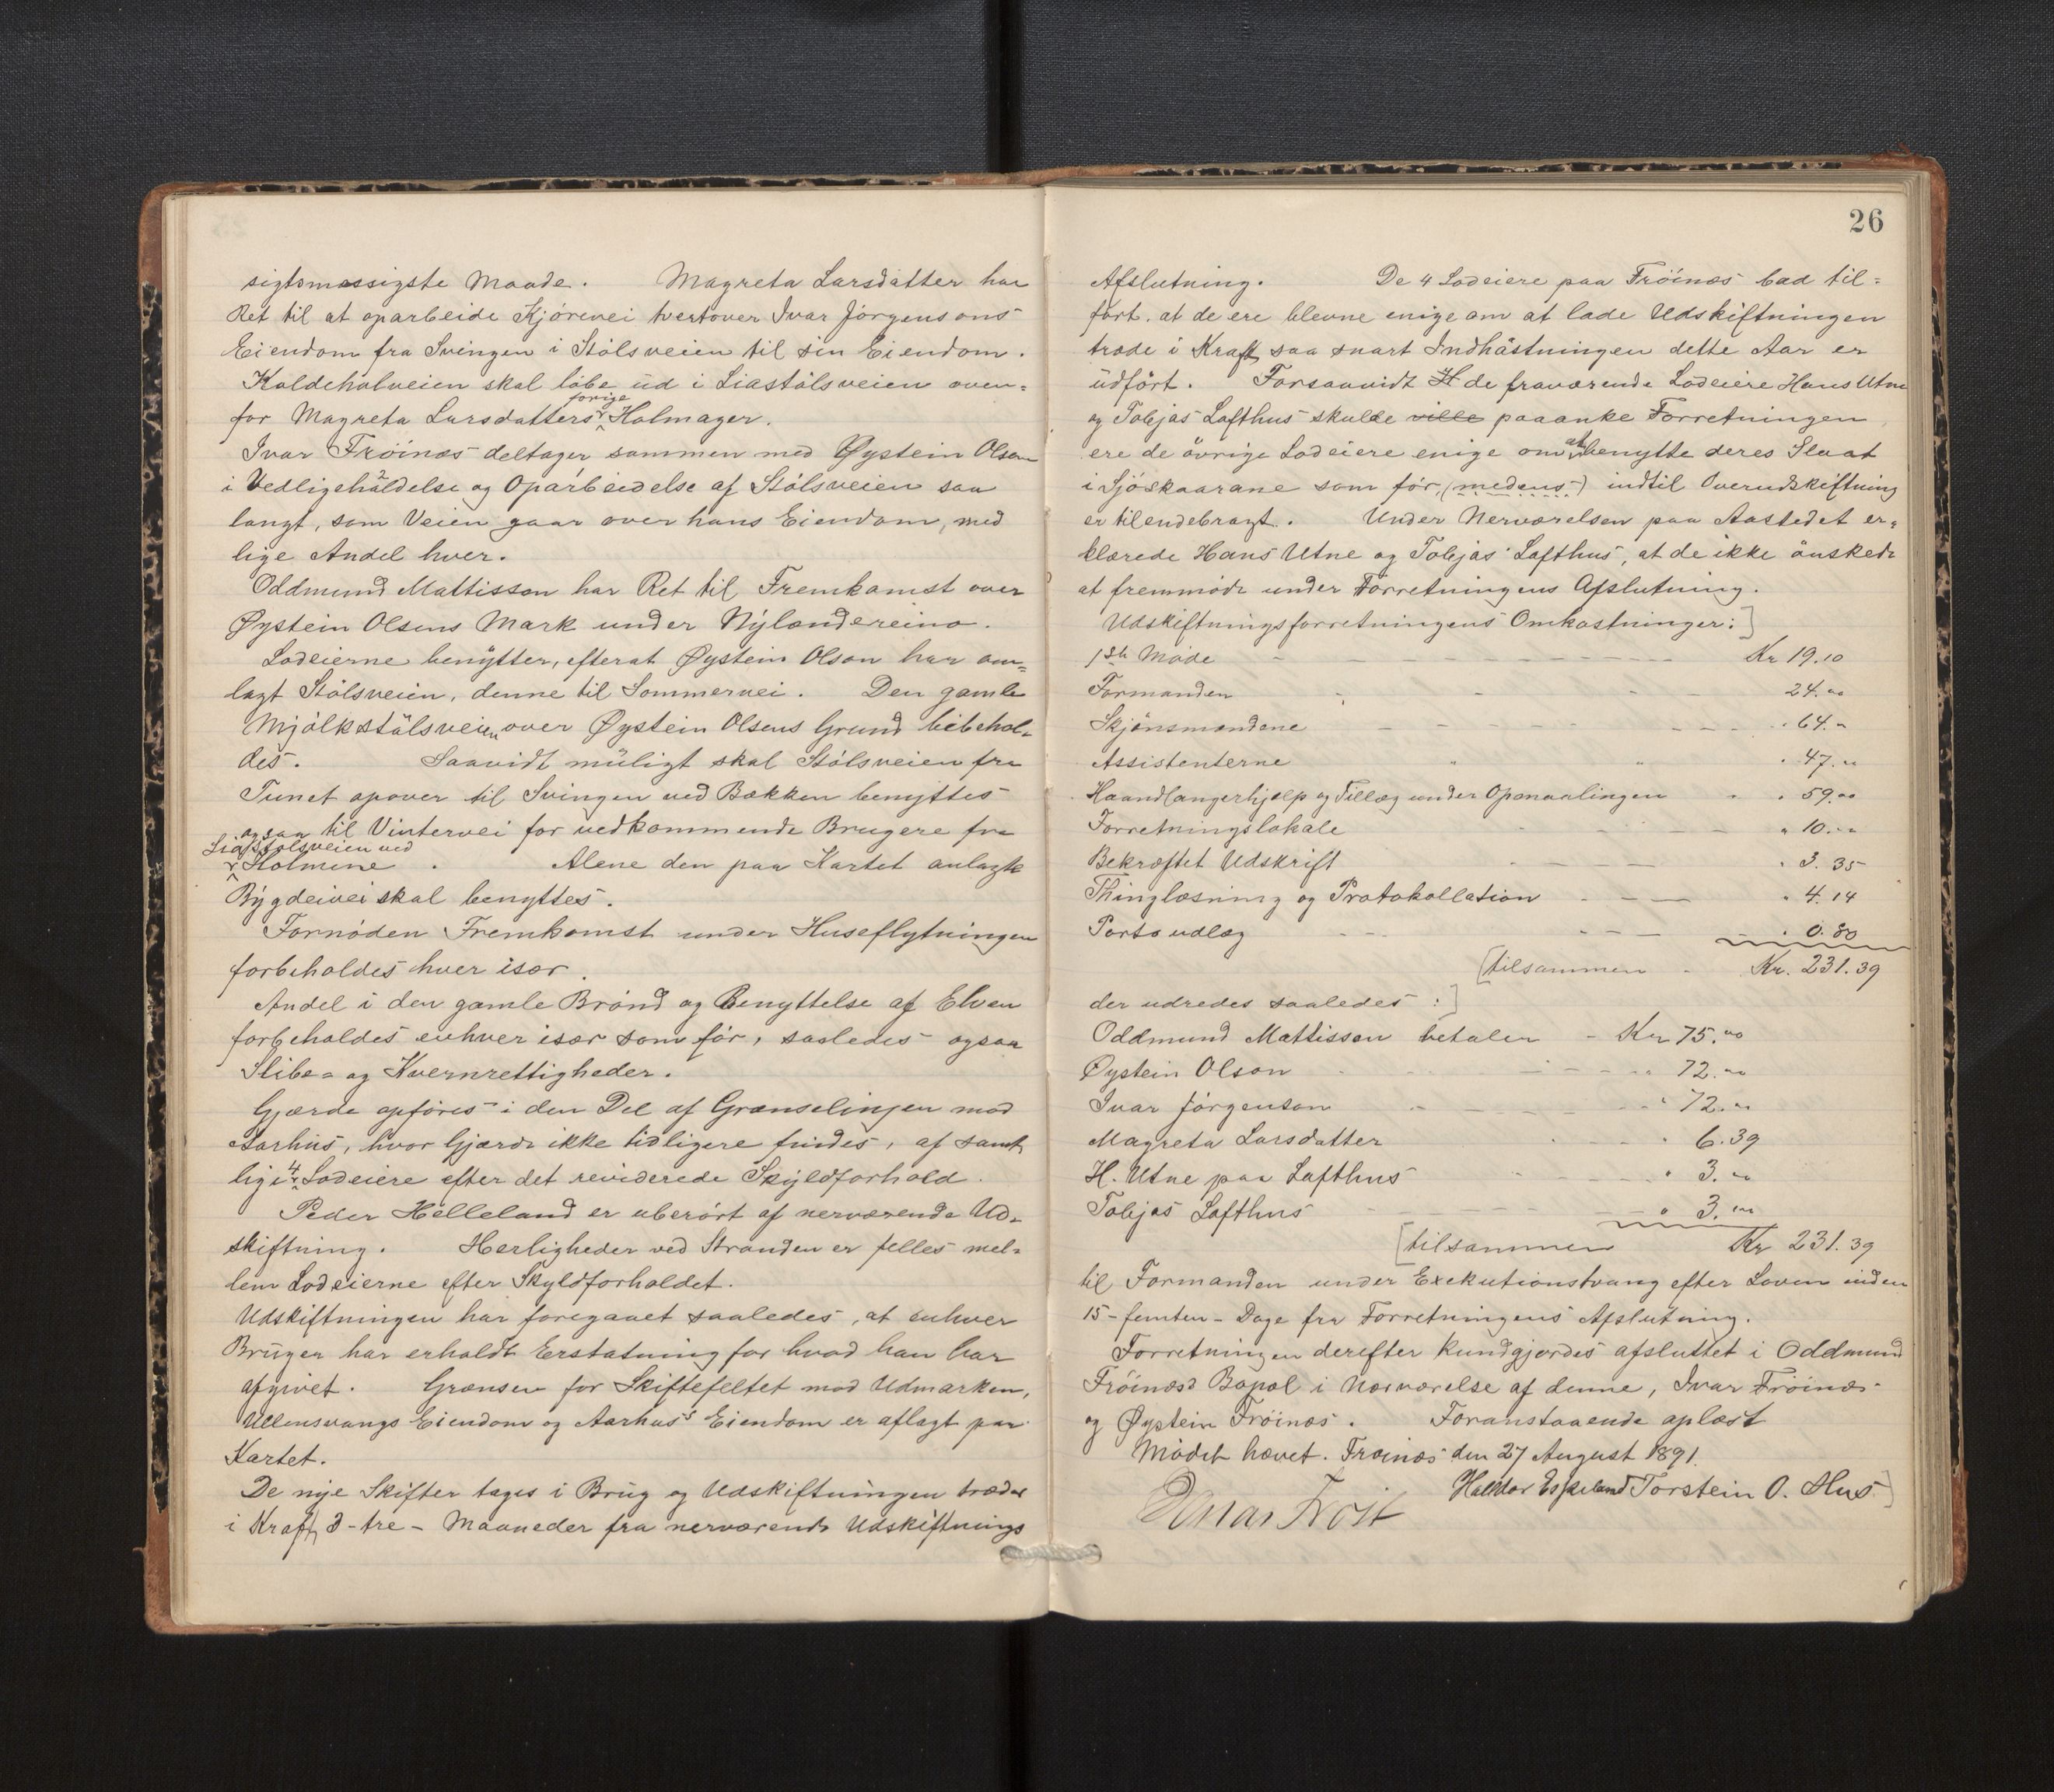 sigtsmæssigste Maade. Magreta Larsdatter har
Ret til at oparbeide Kjörevei tvertover Ivar Jörgensons
Eiendom fra Svingen i Stölsveien til sin Eiendom.
Koldeholveien skal löbe ud i Liastölsveien oven=
for Magreta Larsdatters forige Holmager.
Ivar Fröinæs deltager sammen med Øystein Olson
i Vedligeholdelse og Oparbeidelse af Stölsveien saa
langt, som Veien gaar over hans Eiendom, med
lige Andel hver.
Oddmund Mattisson har Ret til Fremkomst over
Øystein Olsens Mark under Nylændereino.
Lodeierne benytter, efterat Øystein Olson har om=
lagt Stölsveien, denne til Sommervei. Den gamle
Mjölkstölsveien over Øystein Olsens Grund bibehol=
des. Saavidt muligt skal Stölsveien fra
Tunet opover til Svingen ved Bækken benyttes
ogsaa til Vintervei for vedkommende Brugere fra
Liastölsveien ved
Holmene. Alene den paa Kartet anlagte
Bygdeivei skal benyttes.
Fornöden Fremkomst under Huseflytningen
forbeholdes hver især.
Andel i den gamle Brönd og Benyttelse af Elven
forbeholdes enhver især som för, saaledes ogsaa
Slibe- og Kvernrettigheder.
Gjærde opföres i den Del af Grænselinjen mod
Aarhus, hvor Gjærde ikke tidligere findes, af samt
lige 4 Lodeiere efter det reviderede Skyldforhold.
Peder Helleland er uberört af nerværende Ud=
skiftning. Herligheder ved Stranden er felles mel=
lem Lodeierne efter Skyldforholdet.
Udskiftningen har foregaaet saaledes, at enhver
Bruger har erholdt Erstatning for hvad han har
afgivet. Grænsen for Skiftefeltet mod Udmarken,
Ullensvangs Eiendom og Aarhus's Eiendom er aflagt paa
Kartet.
De nye Skifter tages i Brug og Udskiftningen træder
i Kraft 3 - tre - Maaneder fra nerværende Udskiftnings
26
Afslutning. De 4 Lodeiere paa Fröinæs bad til=
fört, at de ere blevne enige om at lade Udskiftningen
træde i Kraft, saa snart Indhöstningen dette Aar er
udfört. Forsaavidt H de fraværende Lodeiere Hans Utne
og Tobjas Lofthus skulde ville paaanke Forretningen
ere de övrige Lodeiere enige om at benytte deres Slaat
i Sjöskaarane som för, (medens) indtil Overudskiftning
er tilendebragt. Under Nerværelsen paa Aastedet er=
klærede Hans Utne og Tobjas Lofthus, at de ikke önskede
at fremmöde under Forretningens Afslutning.
Udskiftningsforretningens Omkostninger:]
1ste Möde Kr 19.10
Formanden 24.00
Skjönsmændene " 64.-
Assistenterne " 47.00
Haandlangerhjælp og Tillæg under Opmaalingen " 59.00
Forretningslokale " 10.00
Bekræftet Udskrift " 3.35
Thinglæsning og Protokollation " 4.14
Portoudlæg " 0.80
[tilsammen - Kr. 231.39
der udredes saaledes:]
Oddmund Mattisson betaler - Kr 75.00
Øystein Olson " 72.00
Ivar Jörgenson " 72.00
Magreta Larsdatter " 6.39
H. Utne paa Lofthus " 3.00
Tobjas Lofthus " 3.00
[tilsammen Kr 231.39
til Formanden under Exekutionstvang efter Loven inden
15 - femten - Dage fra Forretningens Afslutning.
Forretningen derefter kundgjordes afsluttet i Oddmund
Fröinæsd Bopæl i Nærværelse af denne, Ivar Fröinæs
og Øystein Fröinæs. Foranstaaende oplæst
Mödet hævet. Fröinæs den 27 August 1891.
Halldor Espeland Torstein O. Hus]